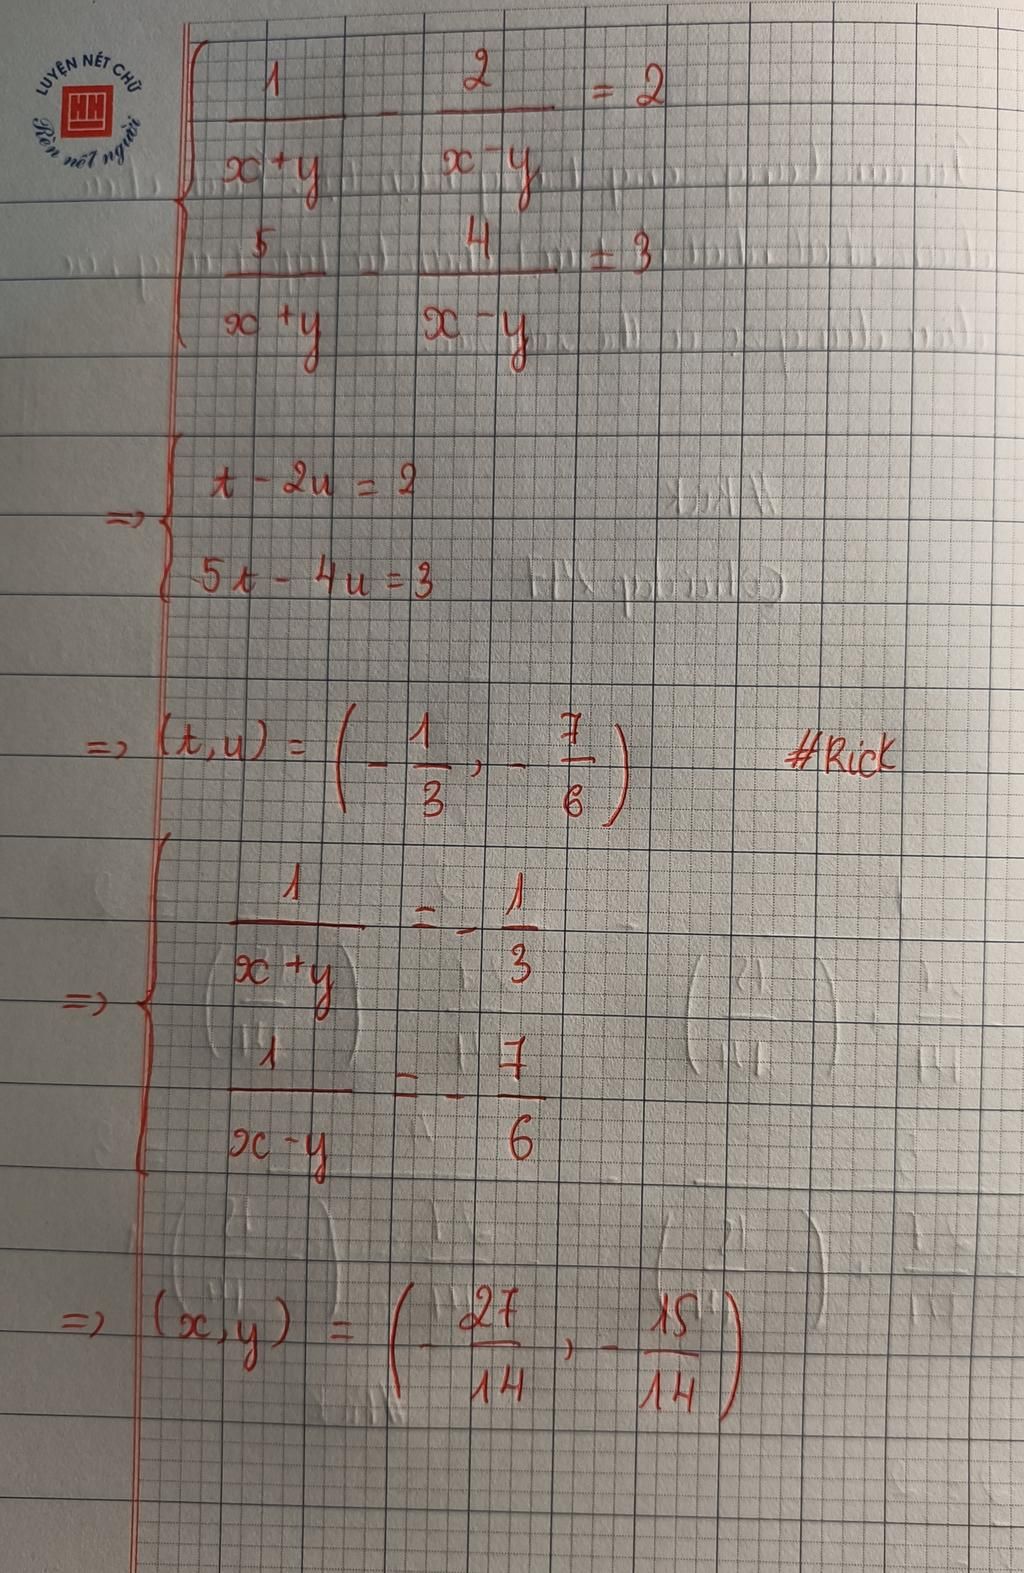 LUYỆN NÉT CHỮ
HH
Rèn nết người
1/(x+y) - 2/(x-y) = 2
5/(x+y) - 4/(x-y) = 3
=> { t - 2u = 2
5t - 4u = 3
=> (t,u) = (-1/3, -7/6) #Rick
=> { 1/(x+y) = -1/3
1/(x-y) = -7/6
=> (x,y) = (-27/14, -15/14)